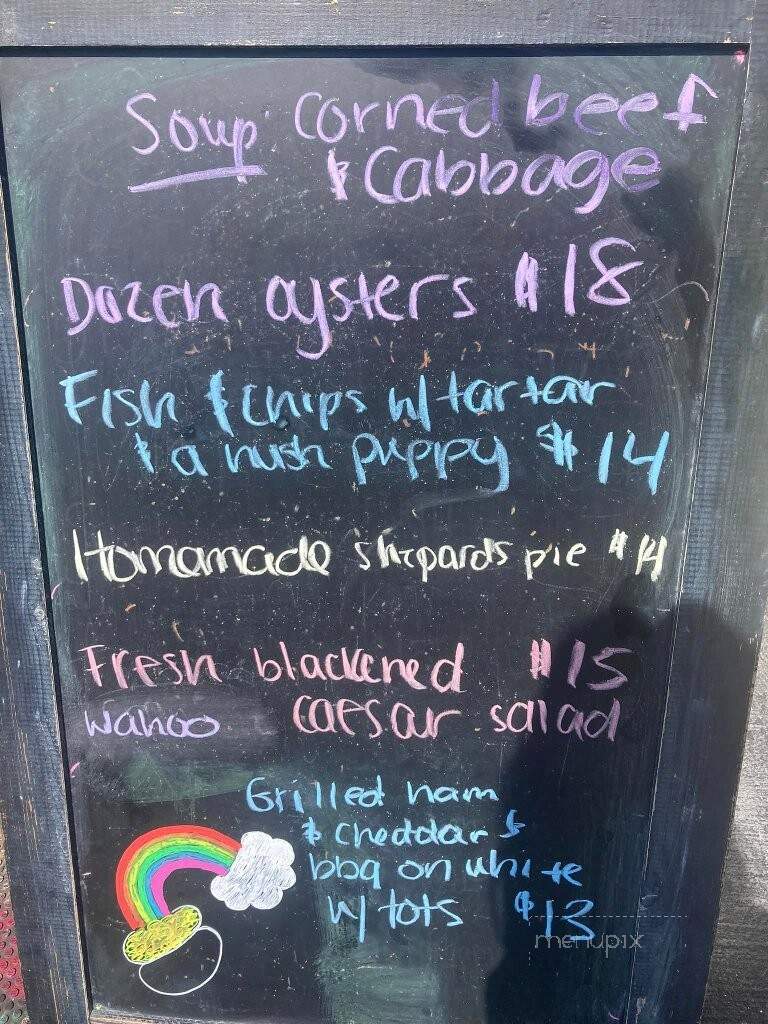 Soup Corned beef
& Cabbage
Dozen oysters $18
Fish & Chips w/ tartar
& a hush puppy $14
Homamade shepards pie $14
Fresh blackened $15
wahoo caesar salad
Grilled ham
& cheddar &
bbq on white
w/ tots $13
menupix